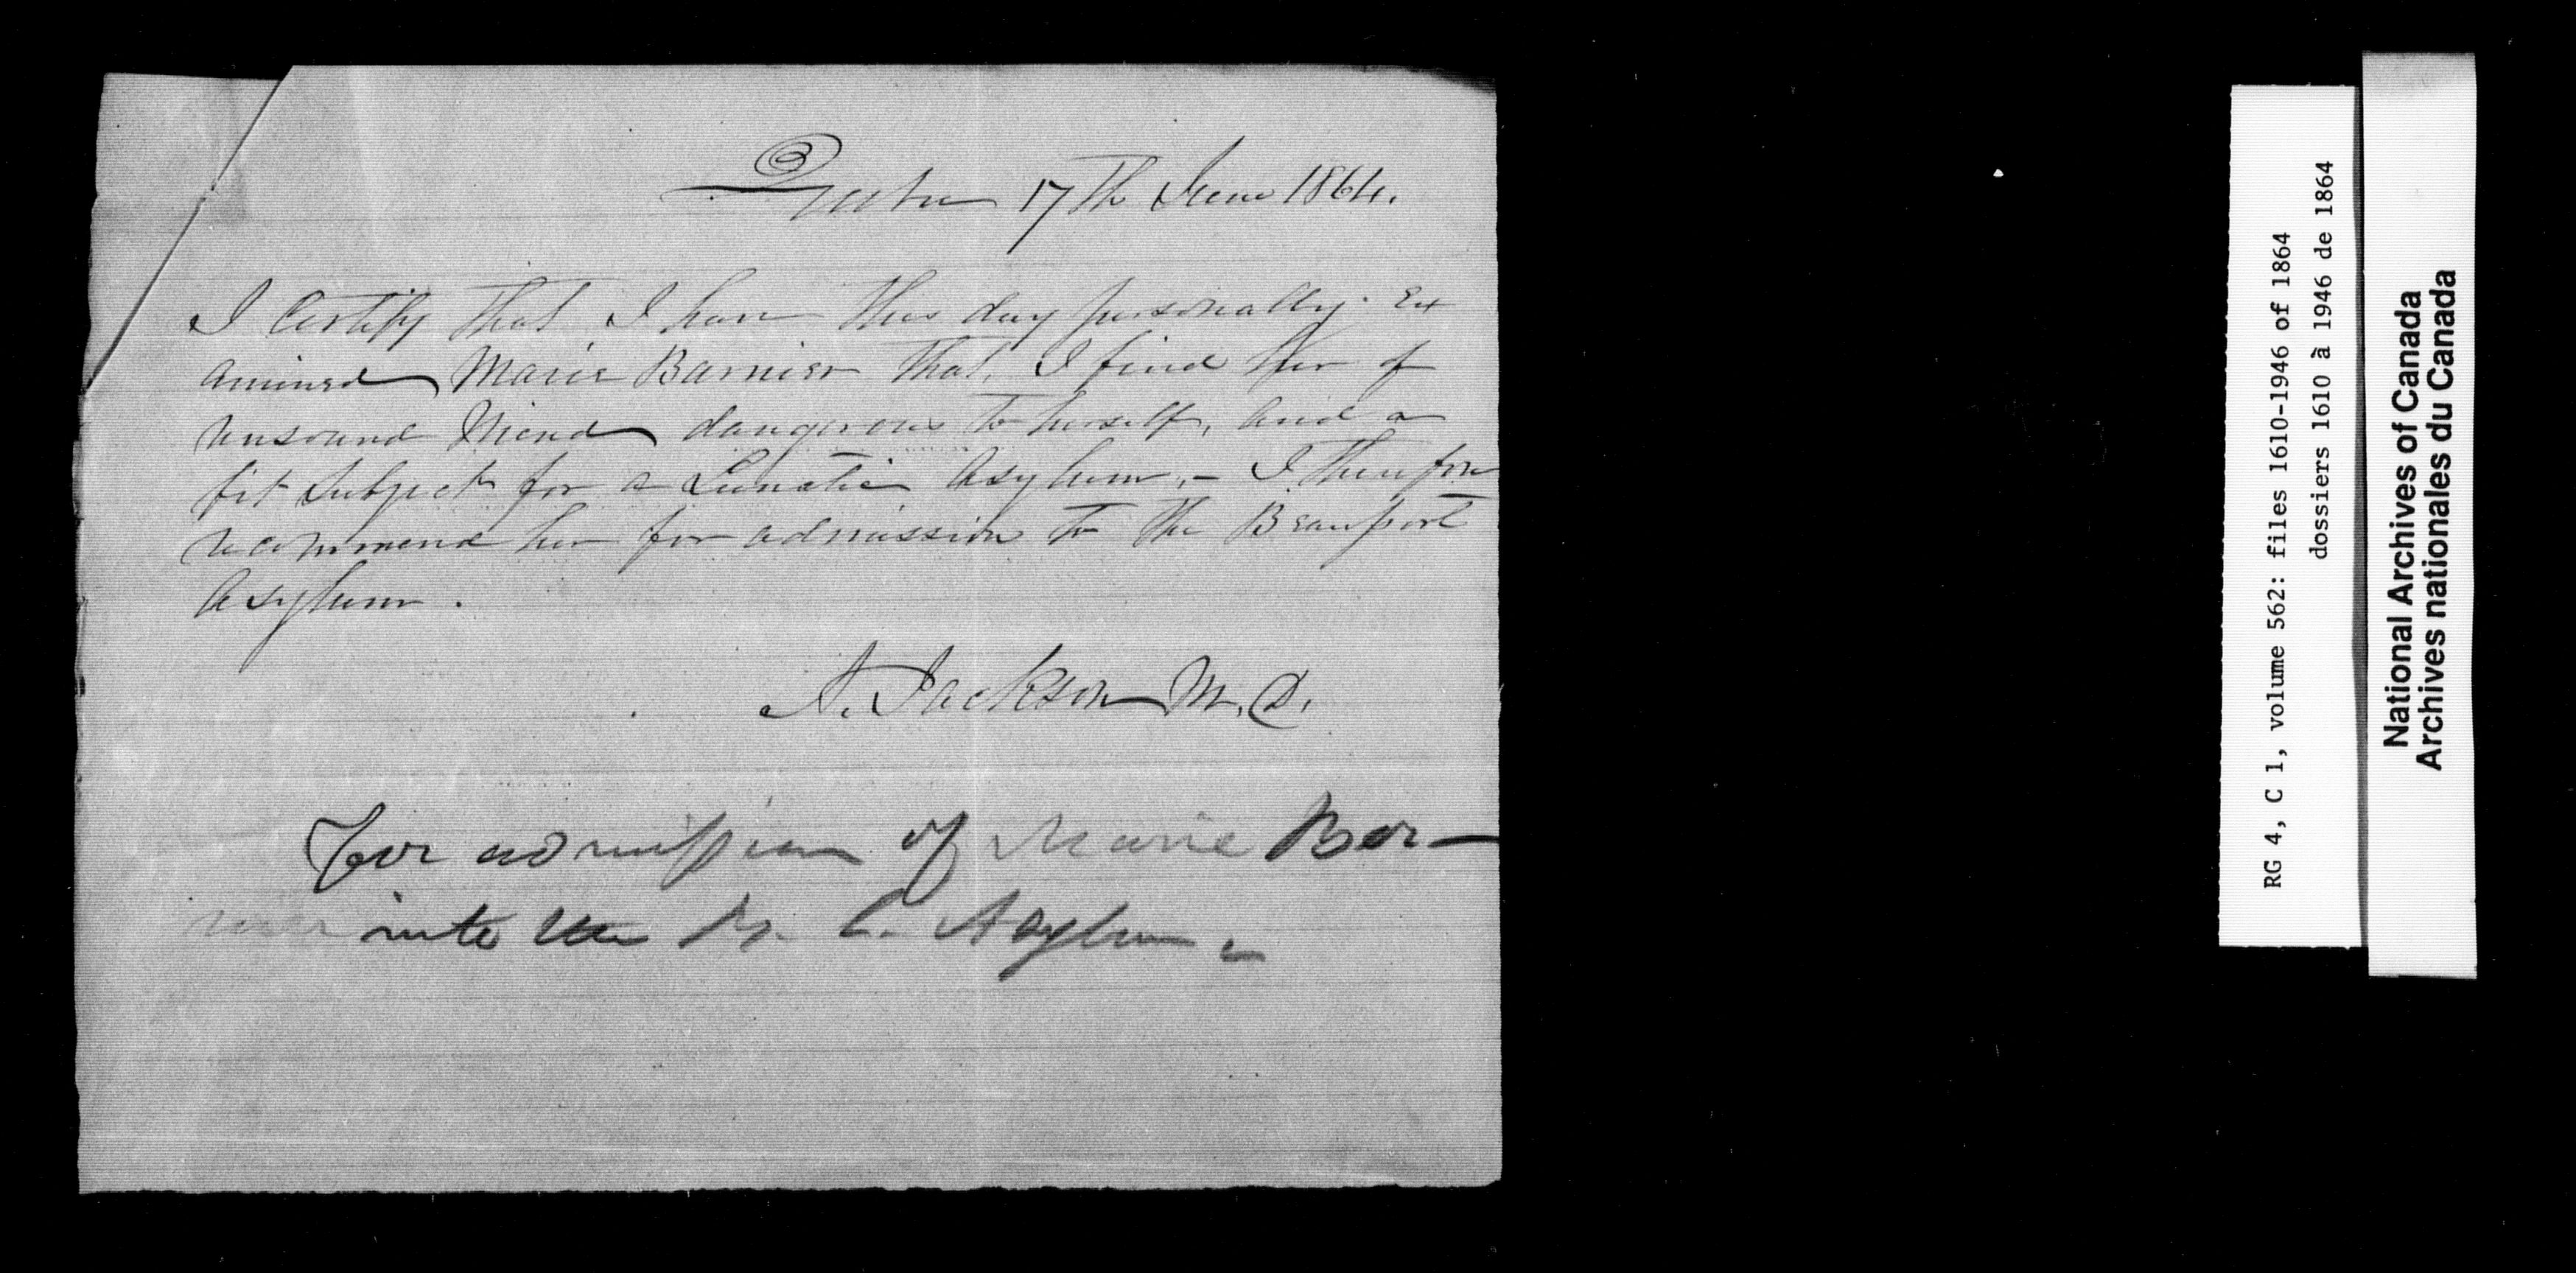 Quebec 17th June 1864.
I Certify that I have this day personally Ex
amined Marie Barnier that, I find her of
unsound Mind dangerous to herself, and a
fit Subject for a Lunatic Asylum, - I therefore
recommend her for admission to the Beauport
Asylum.
A. Jackson M.D.
For admission of Marie Ber-
nier into the B. L. Asylum -
RG 4, C 1, volume 562: files 1610-1946 of 1864
dossiers 1610 à 1946 de 1864
National Archives of Canada
Archives nationales du Canada